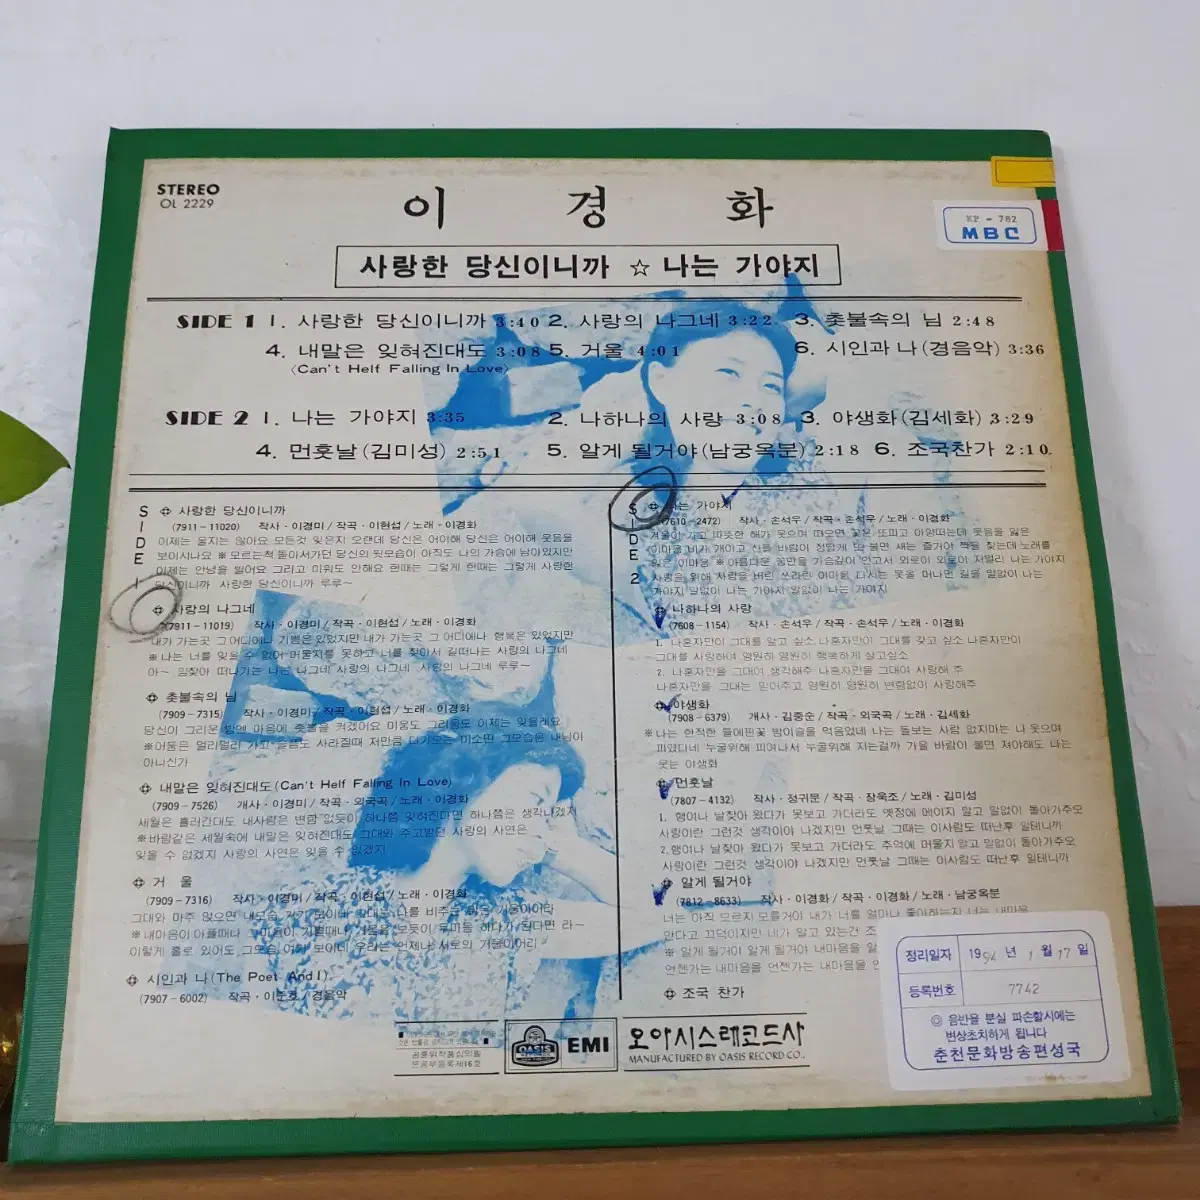 STEREO
OL 2229
이 경 화
KP - 782
MBC
사랑한 당신이니까 ☆ 나는 가야지
SIDE 1 1. 사랑한 당신이니까 3:40 2. 사랑의 나그네 3:22 3. 촛불속의 님 2:48
4. 내말은 잊혀진대도 3:08 5. 거울 4:01 6. 시인과 나(경음악) 3:36
(Can't Helf Falling In Love)
SIDE 2 1. 나는 가야지 3:35 2. 나하나의 사랑 3:08 3. 야생화(김세화) 3:29
4. 먼훗날(김미성) 2:51 5. 알게 될거야(남궁옥분) 2:18 6. 조국찬가 2:10
SIDE 1
사랑한 당신이니까
(7911-11020) 작사·이경미/작곡·이현섭/노래·이경화
이제는 울지는 않아요 모든것 잊은지 오랜데 당신은 어이해 당신은 어이해 웃음을
보이시나요 ※모르는척 돌아서가던 당신의 뒷모습이 아직도 나의 가슴에 남아있지만
이제는 안녕을 빌어요 그리고 미워도 안해요 한때는 그렇게 한때는 그렇게 사랑한
당신이니까 사랑한 당신이니까 루루~
사랑의 나그네
(7911-11019) 작사·이경미/작곡·이현섭/노래·이경화
내가 가는곳 그어디에나 기쁨은 있었지만 내가 가는곳 그 어디에나 행복은 있었지만
※나는 너를 잊을 수 없어 머물지를 못하고 너를 찾아서 길떠나는 사랑의 나그네
아~ 임찾아 떠나가는 나는 나그네 사랑의 나그네 사랑의 나그네 루루~
촛불속의 님
(7909-7315) 작사·이경미/작곡·이현섭/노래·이경화
당신이 그리운 밤엔 마음에 촛불을 켜겠어요 미움도 그리움도 이제는 잊을래요
※어둠은 멀리멀리 가고 슬픔도 사라질때 저만큼 다가오는 미소띤 그모습은 내님이
아니신가
내말은 잊혀진대도(Can't Helf Falling In Love)
(7909-7526) 개사·이경미/작곡·외국곡/노래·이경화
세월은 흘러간대도 내사랑은 변함 없듯이 하나쯤 잊혀진마면 하나쯤은 생각나겠지
※바람같은 세월속에 내말은 잊혀진대도 그대와 주고받던 사랑의 사연은
잊을 수 없겠지 사랑의 사연은 잊을 수 없겠지
거 울
(7909-7316) 작사·이경미/작곡·이현섭/노래·이경화
이렇게 홀로 있어도
시인과 나(The Poet And I)
(7907-6002) 작곡·이순호/경음악
SIDE 2
나는 가야지
(7610-2472) 작사·손석우/작곡·손석우/노래·이경화
겨울이 가고 따뜻한 해가 웃으며 떠오면 꽃은 또피고 아양떠는데 웃음을 잃은
이마음 비가 개이고 산들 바람이 정답게 또 불면 새는 즐거이 짝을 찾는데 노래를
잃은 이마음 ※아름다운 꿈만을 가슴깊이 안고서 외로이 외로이 저멀리 나는 가야지
사랑을 위해 사랑을 버린 쓰라린 이마음 다시는 못올 머나먼 길을 말없이 나는
가야지 말없이 나는 가야지 말없이 나는 가야지
나하나의 사랑
(7608-1154) 작사·손석우/작곡·손석우/노래·이경화
1. 나혼자만이 그대를 알고 싶소 나혼자만이 그대를 갖고 싶소 나혼자만이
그대를 사랑하여 영원히 영원히 행복하게 살고싶소
2. 나혼자만을 그대여 생각해주 나혼자만을 그대여 사랑해 주
나혼자만을 그대는 믿어주고 영원히 영원히 변함없이 사랑해주
야생화
(7908-6379) 개사·김중순/작곡·외국곡/노래·김세화
※나는 한적한 들에핀꽃 밤이슬을 먹음었네 나는 돌보는 사람 없지마는 나 웃으며
피였다네 누굴위해 피여나서 누굴위해 지는걸까 가을 바람이 불면 져야해도 나는
웃는 야생화
먼훗날
(7807-4132) 작사·정귀문/작곡·장욱조/노래·김미성
1. 행여나 날찾아 왔다가 못보고 가더라도 옛정에 메이지 말고 말없이 돌아가주오
사랑이란 그런것 생각이야 나겠지만 먼훗날 그때는 이사람도 떠난후 일테니까
2.행여나 날찾아 왔다가 못보고 가더라도 추억에 머물지 말고 말없이 돌아가주오
사랑이란 그런것 생각이야 나겠지만 먼훗날 그때는 이사람도 떠난후 일테니까
알게 될거야
(7812-8633) 작사·이경화/작곡·이경화/노래·남궁옥분
너는 아직 모르지 모를거야 내가 너를 얼마나 좋아하는지 너는 내마음
말고 있는건
※ 알게 될거야 알게 될거야 내마음을
언젠가는 내마음을 언젠가는 내마음을
조국 찬가
정리일자 1994 년 1 월 17 일
등록번호 7742
◎ 음반을 분실 파손할시에는
변상조치하게 됩니다
춘천문화방송편성국
공륜위작품심의필
문공부등록제16호
OASIS
EMI
오아시스레코드사
MANUFACTURED BY OASIS RECORD CO.,